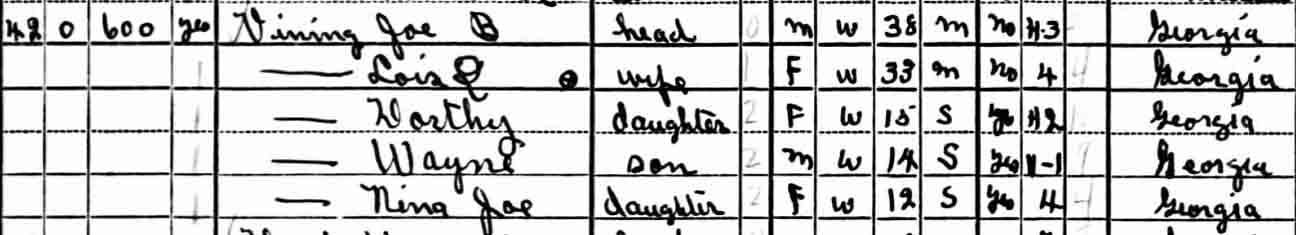 42 0 600 yes Vining Joe B head 0 M W 38 M no H-3 Georgia
— Lois Q wife 1 F W 33 M no 4 4 Georgia
— Dorthy daughter 2 F W 15 S yes H2 Georgia
— Wayne son 2 M W 14 S yes H-1 9 Georgia
— Nina Joe daughter 2 F W 12 S yes 4 4 Georgia